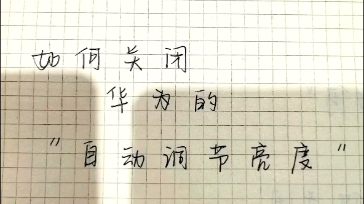 如何关闭
华为的
"自动调节亮度"